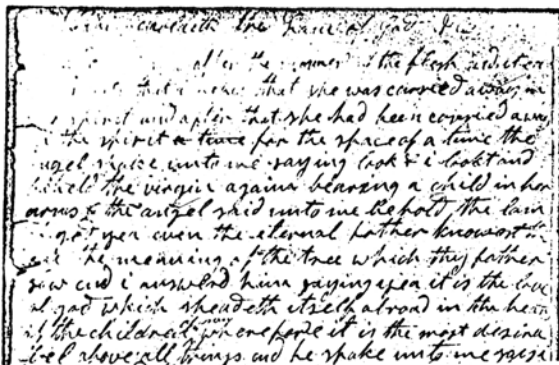 the Son of God &
after the manner of the flesh and it ca
that she was carried away in
spirit and after that she had been carried away
the spirit a time for the space of a time the
angel spake unto me saying look & i lookt and
beheld the virgin again bearing a child in her
arms & the angel said unto me behold the lam
god yea even the eternal father knowest th
the meaning of the tree which thy father
saw and i answerd him saying yea it is the love
of god which sheadeth itself abroad in the hear
of the children of men wherefore it is the most desira
bel above all things and he spake unto me